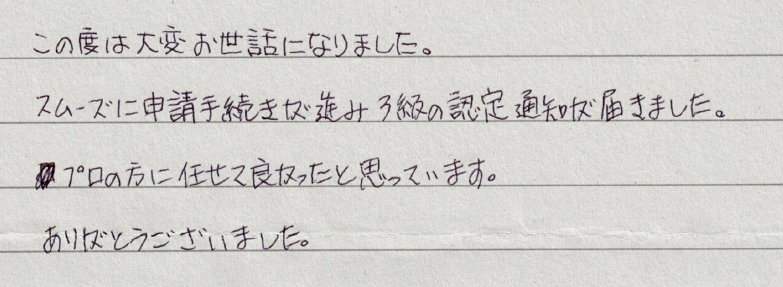 この度は大変お世話になりました。
スムーズに申請手続きが進み3級の認定通知が届きました。
プロの方に任せて良かったと思っています。
ありがとうございました。